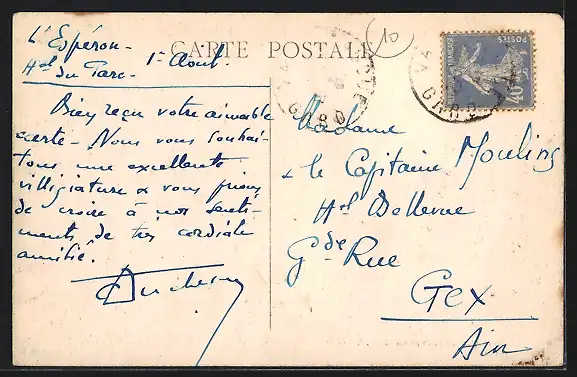 L'Espéron -
Hel du Parc - 1er Aout.
CARTE POSTALE
10
Bien reçu votre aimable
carte - Nous vous souhai-
tons une excellente
villégiature & vous prions
de croire à nos senti-
ments de très cordiale
amitié.
POSTES
40c
GARD
GARD
Madame
le Capitaine Mouling
Hel Bellevue
Gde Rue
Gex
Ain